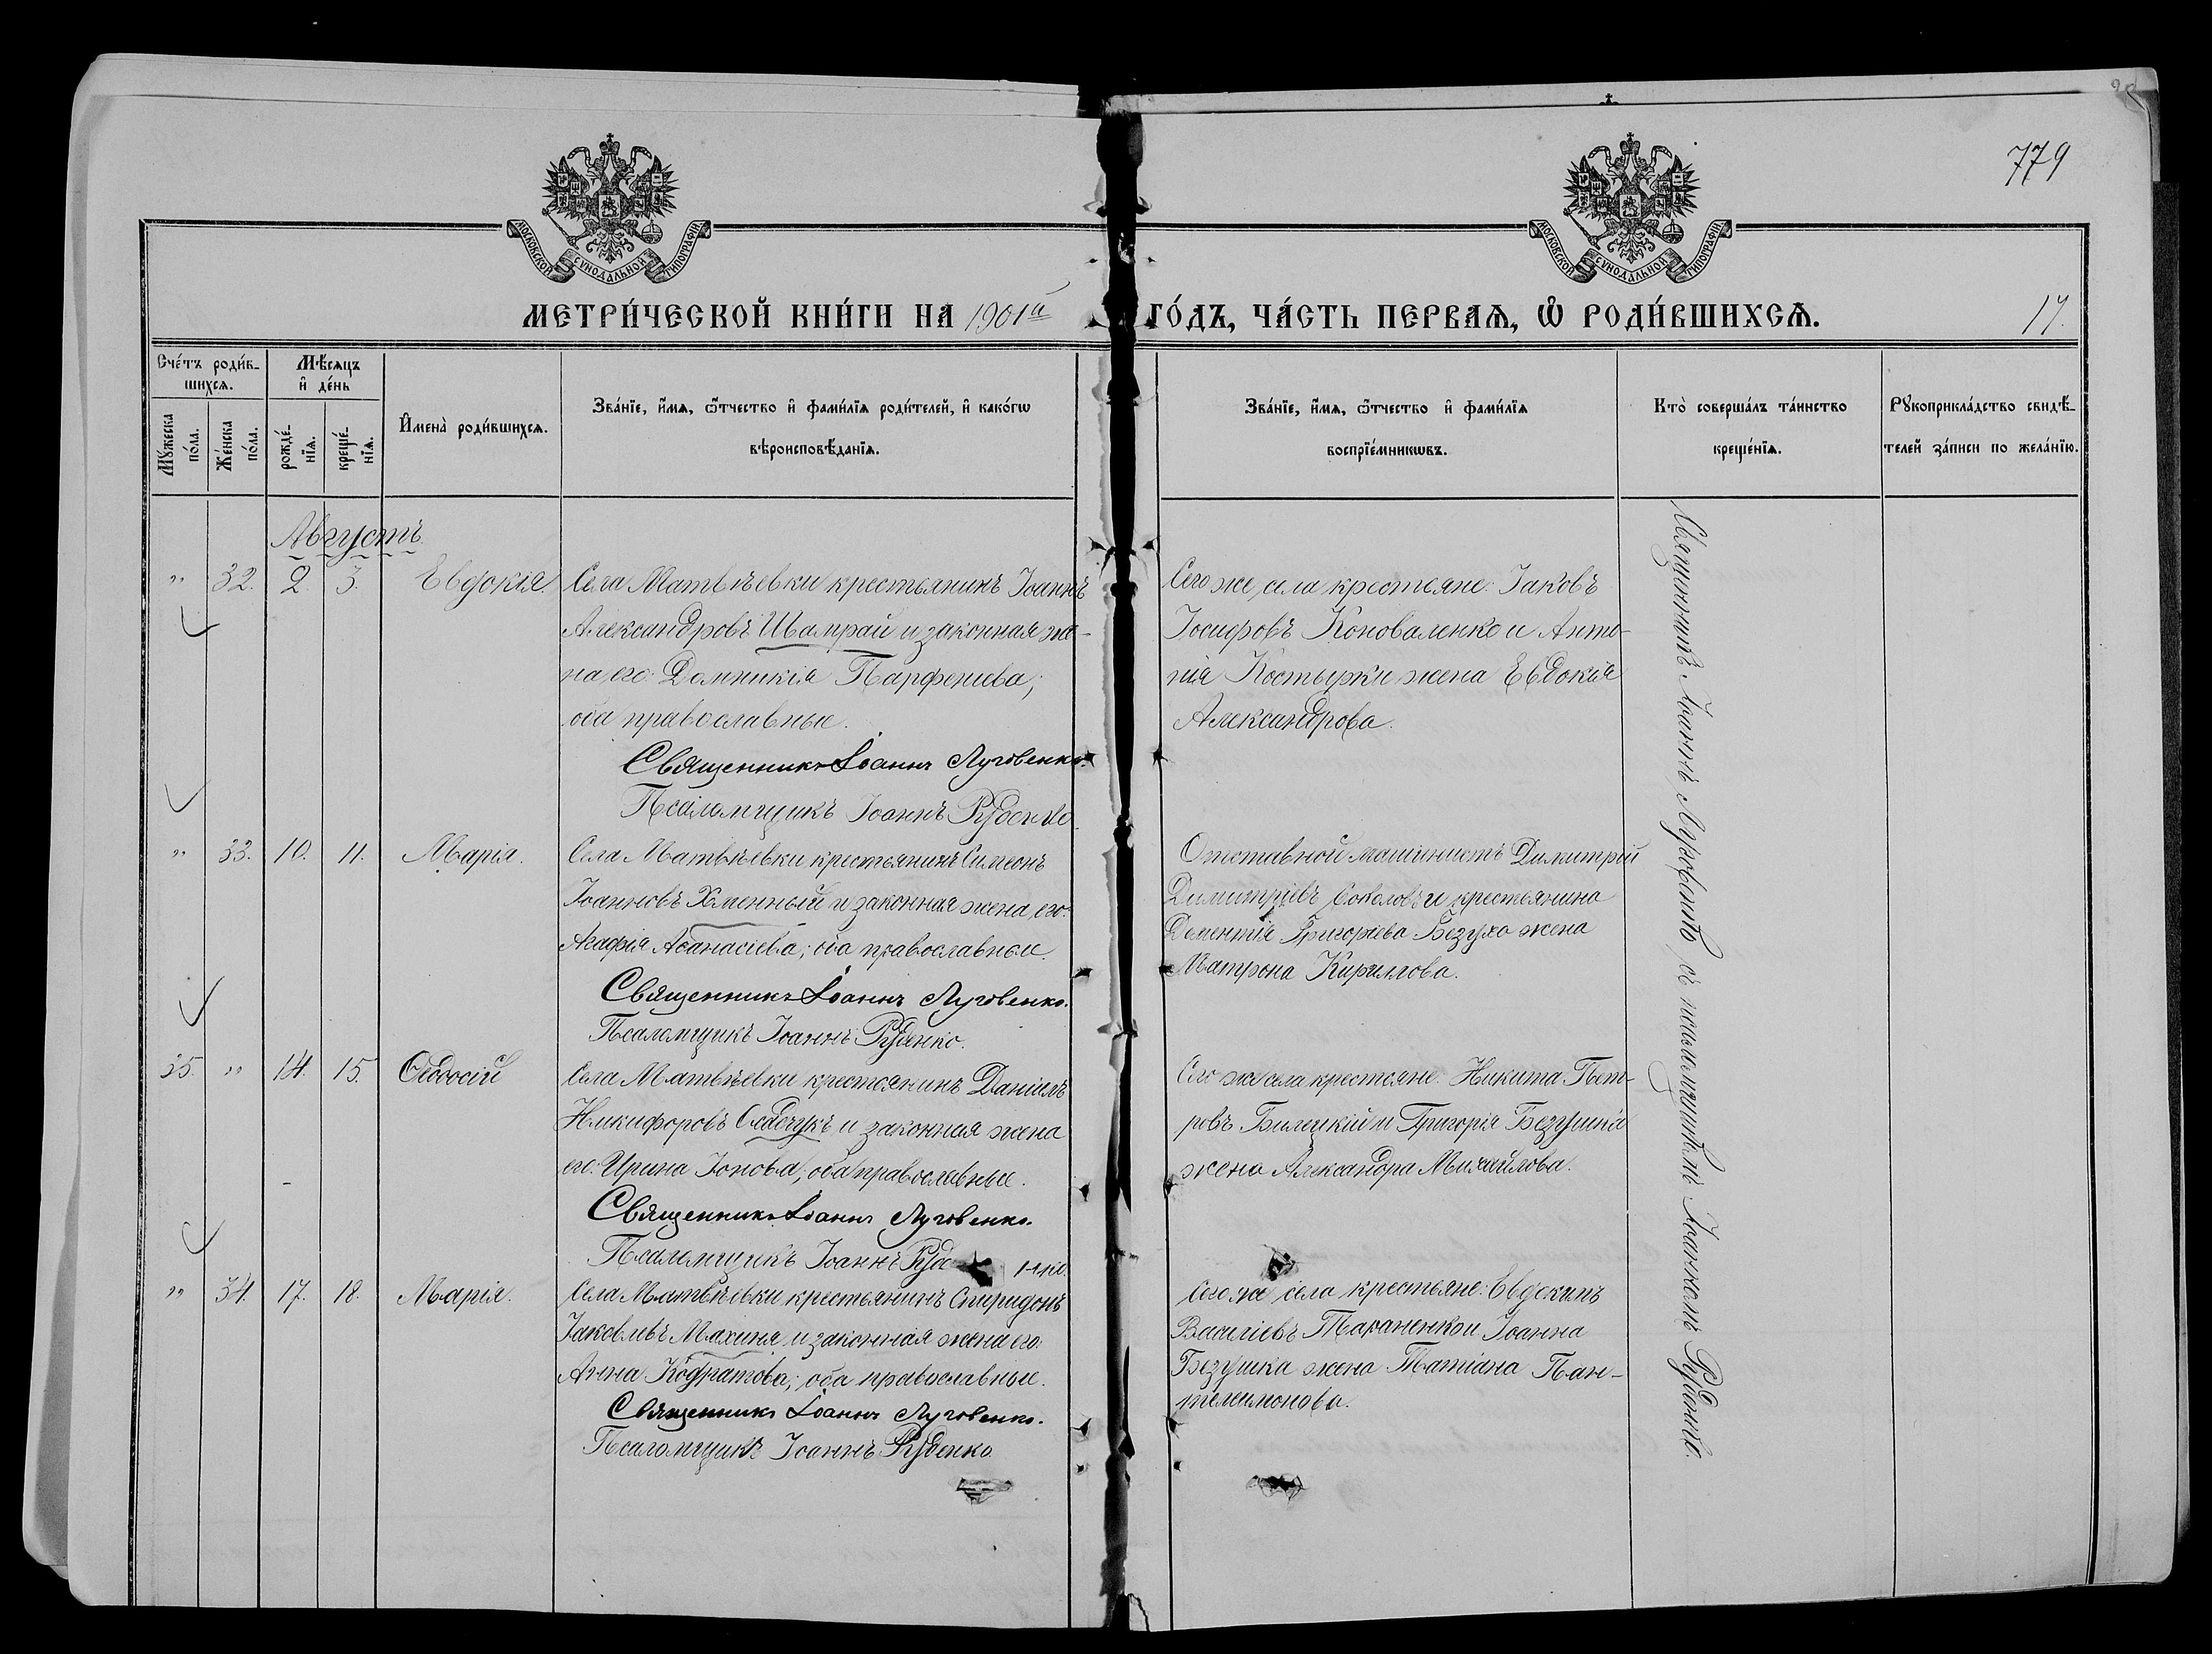 779
МОСКОВСКОЙ СУНОДАЛЬНОЙ ТИПОГРАФІИ
МОСКОВСКОЙ СУНОДАЛЬНОЙ ТИПОГРАФІИ
МЕТРИ́ЧЕСКОЙ КНИ́ГИ НА 1901й ГО́ДЪ, ЧА́СТЬ ПЕРВАѦ, Ѡ РОДИ́ВШИХСѦ.
17.
Сче́тъ роди́в-
шихсѧ.
Мѣ́сѧцъ
и҆ де́нь
Мꙋ́жеска
по́ла.
Же́нска
по́ла.
рожде́-
нїѧ.
креще́-
нїѧ.
И҆мена̀ роди́вшихсѧ.
Зва́нїе, и҆́мѧ, ѻ҆́тчество и҆ фами́лїѧ роди́телей, и҆ како́гѡ
вѣроисповѣ́данїѧ.
Зва́нїе, и҆́мѧ, ѻ҆́тчество и҆ фами́лїѧ
воспрїе́мникѡвъ.
Кто̀ соверша́лъ та́инство
креще́нїѧ.
Рꙋкоприкла́дство свидѣ́-
телей за́писи по жела́нїю.
Августъ
" 32. 2. 3. Евдокія.
Села Матвѣевки крестьянинъ Іоаннъ
Александровъ Шампрай и законная же-
на его: Домникія Парфеніева;
оба православные.
Священникъ Іоаннъ Луговенко.
Псаломщикъ Іоаннъ Руденко.
Сего же села крестьяне: Іаковъ
Іосифовъ Коноваленко и Анто-
нія Костыжки жена Евдокія
Александрова.
" 33. 10. 11. Марія.
Села Матвѣевки крестьянинъ Симеонъ
Іоанновъ Хменный и законная жена его:
Агафія Аѳанасіева; оба православные.
Священникъ Іоаннъ Луговенко.
Псаломщикъ Іоаннъ Руденко.
Отставной машинистъ Димитрій
Димитріевъ Соколовъ и крестьянина
Дементія Григоріева Безухо жена
Матрона Кириллова.
35. " 14. 15. Ѳеодосій
Села Матвѣевки крестьянинъ Даніилъ
Никифоровъ и законная жена
его: Ирина Іонова; оба православные.
Священникъ Іоаннъ Луговенко.
Псаломщикъ Іоаннъ Руденко.
Сего же села крестьяне: Никита Пет-
ровъ Билецкій и Григорія Безушка
жена Александра Михайлова.
" 34. 17. 18. Марія.
Села Матвѣевки крестьянинъ Спиридонъ
Іаковлевъ Махиня и законная жена его:
Анна Кодратова; оба православные.
Священникъ Іоаннъ Луговенко.
Псаломщикъ Іоаннъ Руденко.
Сего же села крестьяне: Евдокимъ
Василіевъ Тараненко и Іоанна
Безушка жена Татіана Пан-
телеимонова.
Священникъ Іоаннъ Луговенко съ псаломщикомъ Іоанномъ Руденко.